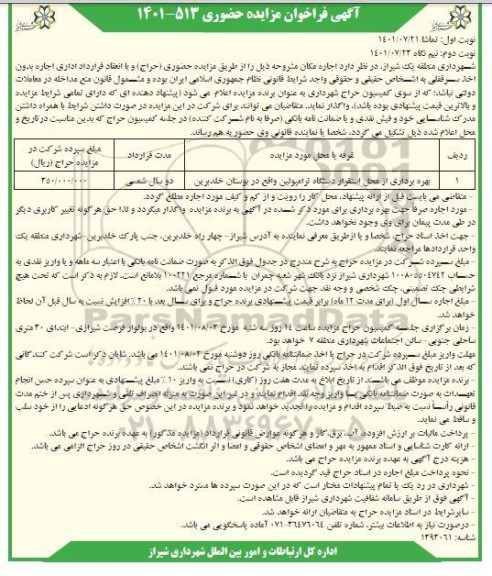 آگهی فراخوان مزایده حضوری ۵۱۳-۱۴۰۱
نوبت اول: تماشا ۱۴۰۱/۰۷/۲۱
نوبت دوم: نیم نگاه ۱۴۰۱/۰۷/۲۳
شهرداری منطقه یک شیراز، در نظر دارد اجاره مکان مشروحه ذیل را از طریق مزایده حضوری (حراج) و با انعقاد قرارداد اداری اجاره بدون
اخذ سرقفلی به اشخاص حقیقی و حقوقی واجد شرایط قانونی نظام جمهوری اسلامی ایران بوده و مشمول قانون منع مداخله در معاملات
دولتی نباشد؛ که از سوی کمیسیون حراج شهرداری به عنوان برنده مزایده اعلام می شود (پیشنهاد دهنده ای که دارای تمامی شرایط مزایده
و بالاترین قیمت پیشنهادی بوده باشد)، واگذار نماید. متقاضیان می توانند برای شرکت در این مزایده در صورت داشتن شرایط با همراه داشتن
مدرک شناسایی خود و فیش نقدی و یا ضمانت نامه بانکی (صرفا به نام شرکت کننده) در جلسه کمیسیون حراج که بدین مناسبت در تاریخ و
محل اعلام شده ذیل تشکیل می گردد، شخصا یا نماینده قانونی وی حضور به هم رساند.
ردیف | غرفه یا محل مورد مزایده | مدت قرارداد | مبلغ سپرده شرکت در مزایده حراج (ریال)
۱ | بهره برداری از محل استقرار دستگاه ترامپولین واقع در بوستان خلدبرین | دو سال شمسی | ۳۵۰/۰۰۰/۰۰۰
- متقاضی می بایست قبل از ارائه پیشنهاد، محل کار را رویت و از کم و کیف مورد اجاره مطلع گردد.
- مورد اجاره صرفا جهت بهره برداری برای مورد ذکر شده در آگهی به برنده مزایده واگذار میگردد و لذا حق هرگونه تغییر کاربری دیگر
در طی مدت پیمان برای وی وجود نخواهد داشت.
- جهت اخذ اسناد حراج، شخصا و یا از طریق معرفی نماینده به آدرس شیراز- چهار راه خلدبرین، جنب پارک خلدبرین- شهرداری منطقه یک
واحد قراردادها مراجعه نمایند.
- مبلغ سپرده شرکت در مزایده حراج به شرح مندرج در جدول فوق الذکر به صورت ضمانت نامه بانکی با اعتبار سه ماهه و یا واریز نقدی به
حساب ۱۰۰۸۰۵۵۰۴۷۴۲ شهرداری شیراز نزد بانک شهر شعبه چمران با شماره مرجع ۱۰۰۲۲۱ بلامانع است. لازم به ذکر است که تحت هیچ
شرایطی چک تضمینی، چک شخصی و وجه نقد جهت شرکت در مزایده مورد قبول نمی باشد.
- مبلغ اجاره سال اول (برای مدت ۱۲ ماه) برابر قیمت پیشنهادی برنده حراج و برای سال بعد با ۲۰٪ افزایش نسبت به سال قبل آن لحاظ
خواهد شد.
- زمان برگزاری جلسه کمیسیون حراج مزایده ساعت ۱۴ روز سه شنبه مورخ ۱۴۰۱/۰۸/۰۳ واقع در بولوار فرصت شیرازی- ابتدای ۳۰ متری
ساحلی جنوبی- سالن اجتماعات شهرداری منطقه ۷ خواهد بود.
مهلت واریز مبلغ سپرده شرکت در حراج یا اخذ ضمانتنامه بانکی روز دوشنبه مورخ ۱۴۰۱/۰۸/۰۲ می باشد. شایان ذکر است شرکت کنندگانی
که بعد از تاریخ فوق الذکر اقدام به اخذ سپرده نمایند مجاز به شرکت در حراج نمی باشند.
- برنده مزایده موظف می باشند از تاریخ ابلاغ به مدت هفت روز (کاری) نسبت به واریز ۱۰٪ مبلغ پیشنهادی به عنوان سپرده حسن انجام
تعهدات به صورت ضمانتنامه بانکی یا واریز وجه نقد اقدام نمایند و در غیر این صورت به منزله انصراف تلقی و شهرداری پس از ختم مدت
قانونی راسا نسبت به ضبط سپرده اقدام و مزایده را تجدید خواهد نمود و برنده مزایده در این خصوص حق هرگونه ادعایی را از خود سلب
و ساقط می نماید.
- پرداخت مالیات بر ارزش افزوده، آب، برق، گاز و هرگونه عوارض قانونی قرارداد (مزایده مذکور) به عهده برنده حراج می باشد.
- ارائه کارت شناسایی و اسناد ممهور به مهر و امضای اشخاص حقوقی و امضا و اثر انگشت اشخاص حقیقی در روز حراج الزامی می باشد.
- هزینه درج آگهی به عهده برنده مزایده حراج می باشد.
- نحوه پرداخت مبلغ اجاره در اسناد حراج قید گردیده است.
- شهرداری در رد یک یا تمام پیشنهادات مختار است که در این صورت سپرده ها مسترد خواهد شد.
- آگهی فوق از طریق سامانه شفافیت شهرداری شیراز قابل مشاهده است.
- سایر شرایط در اسناد حراج به متقاضیان ارائه خواهد شد.
- در صورت نیاز به اطلاعات بیشتر، شماره تلفن ۳۶۴۷۶۰۶۴-۰۷۱ آماده پاسخگویی می باشد.
شناسه: ۱۳۹۳۰۶۱
اداره کل ارتباطات و امور بین الملل شهرداری شیراز
ParsNamadData
۰۲۱-۸۸۳۴۹۶۷۰-۵